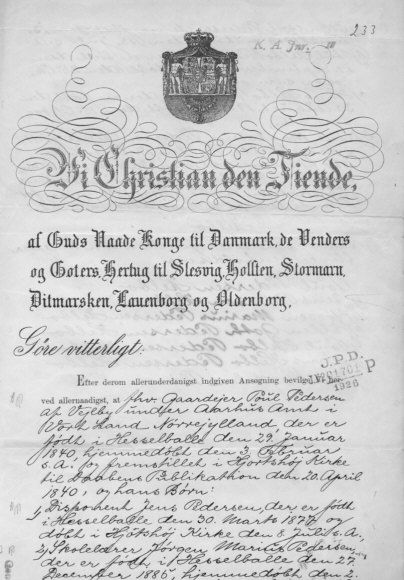 233
K. A. Jnr.
Vi Christian den Tiende,
af Guds Naade Konge til Danmark, de Venders
og Goters, Hertug til Slesvig, Holsten, Stormarn,
Ditmarsken, Lauenborg og Oldenborg,
Göre vitterligt:
J.P.D.
P
1926
Efter derom allerunderdanigst indgiven Ansøgning bevilge Vi her
ved allernaadigst, at fhv. Gaardejer Poul Pedersen
af Vejlby under Aarhus Amt i
Vort Land Nørrejylland, der er
født i Hesselballe den 29. Januar
1840, hjemmedøbt den 3. Februar
s.A. og fremstillet i Hjortshøj Kirke
til Daabens Publikation den 20. April
1840, og hans Børn:
1) Disponent Jens Pedersen, der er født
i Hesselballe den 30. Marts 1877 og
døbt i Hjortshøj Kirke den 8. Juli s.A.,
2) Skolelærer Jørgen Marius Pedersen,
der er født i Hesselballe den 27.
December 1885, hjemmedøbt den 2.